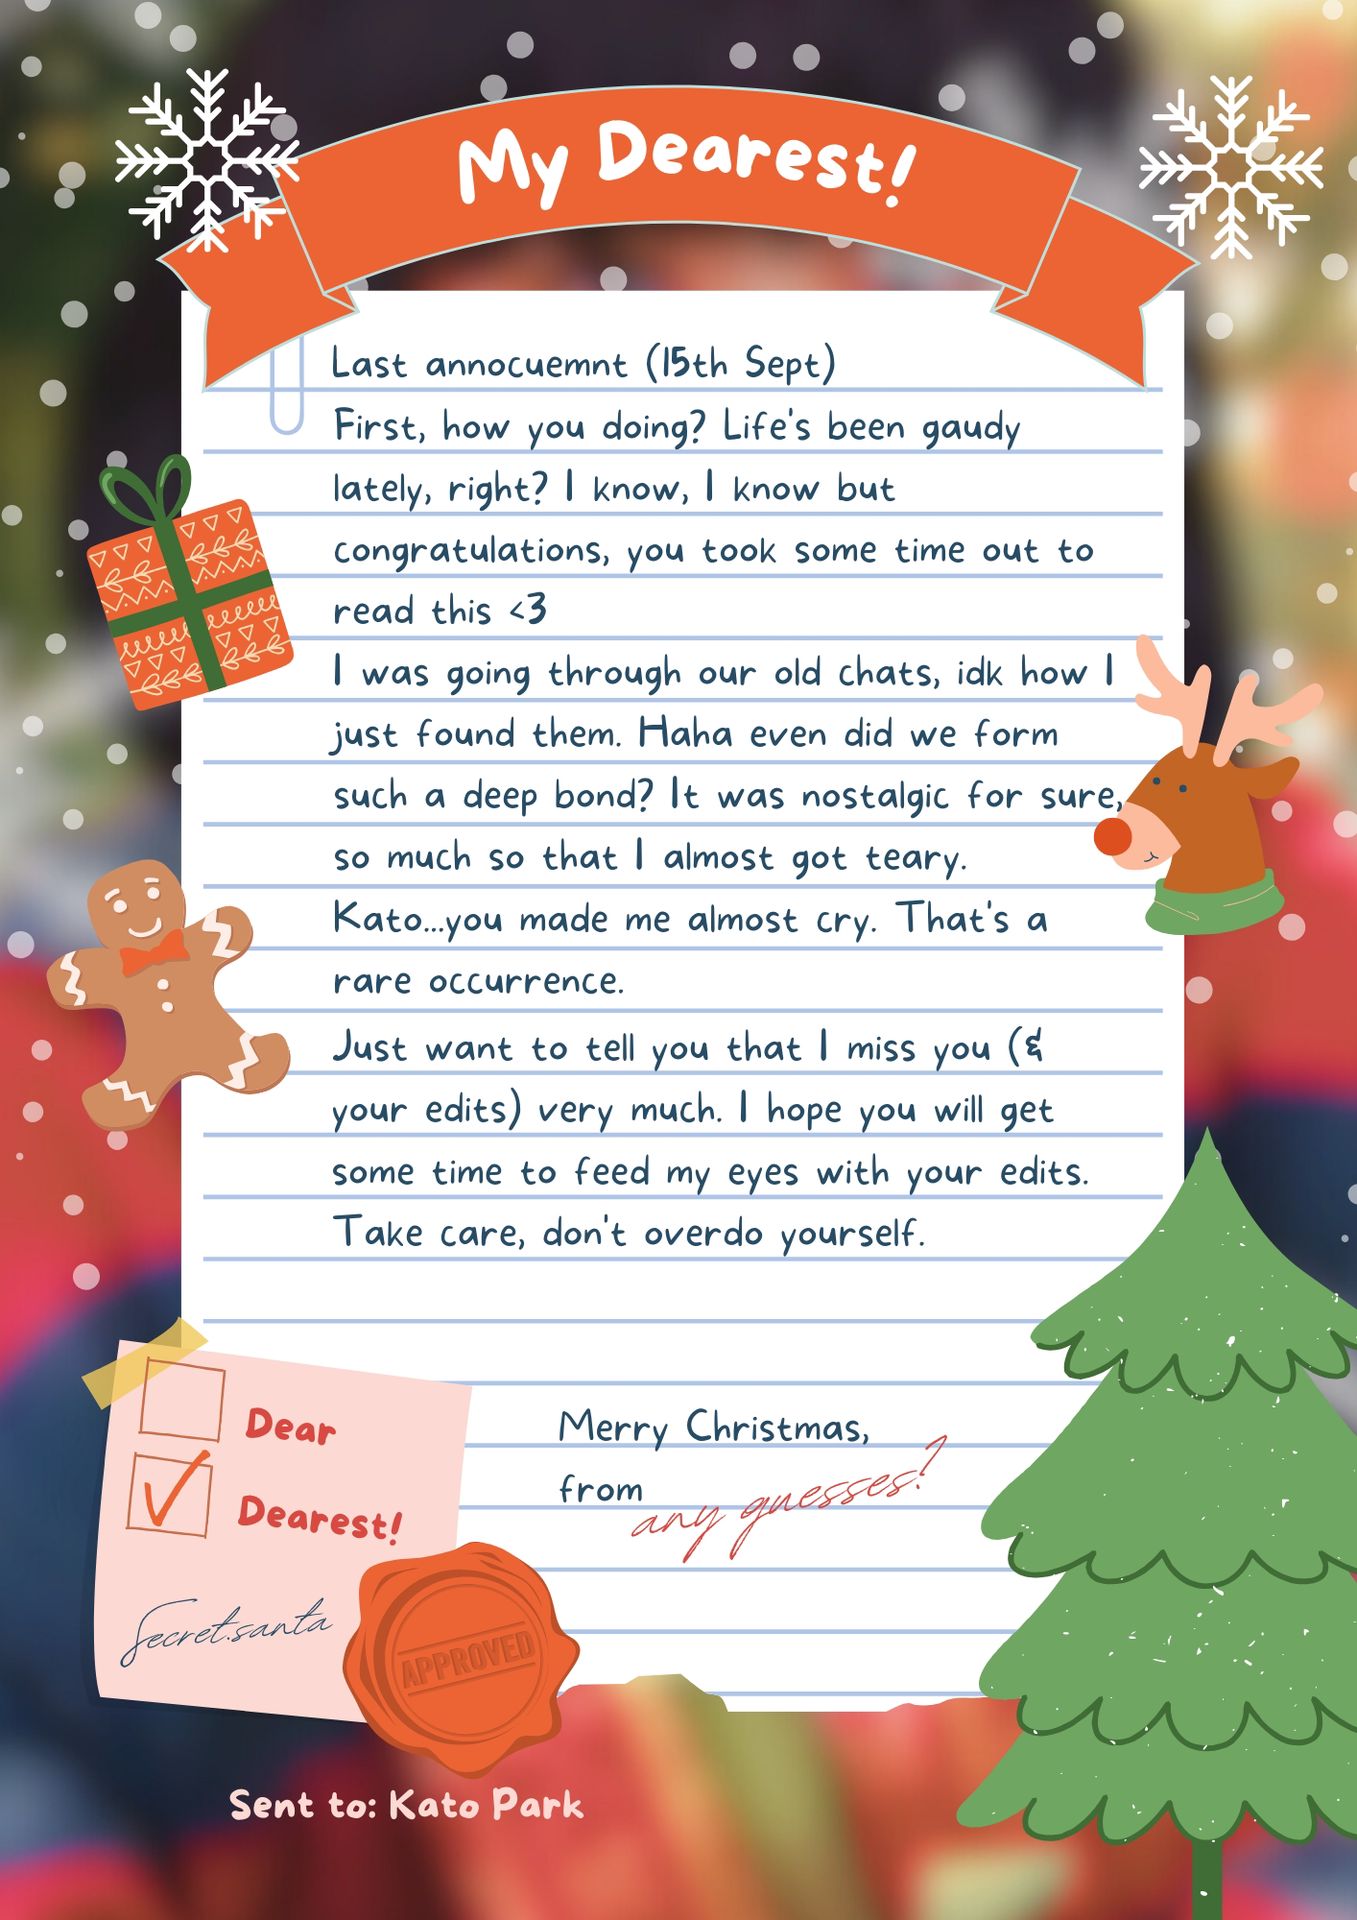 My Dearest!
Last annocuemnt (15th Sept)
First, how you doing? Life's been gaudy
lately, right? I know, I know but
congratulations, you took some time out to
read this <3
I was going through our old chats, idk how I
just found them. Haha even did we form
such a deep bond? It was nostalgic for sure,
so much so that I almost got teary.
Kato...you made me almost cry. That's a
rare occurrence.
Just want to tell you that I miss you (&
your edits) very much. I hope you will get
some time to feed my eyes with your edits.
Take care, don't overdo yourself.
Merry Christmas,
from any guesses?
Dear
Dearest!
Secret.santa
APPROVED
Sent to: Kato Park